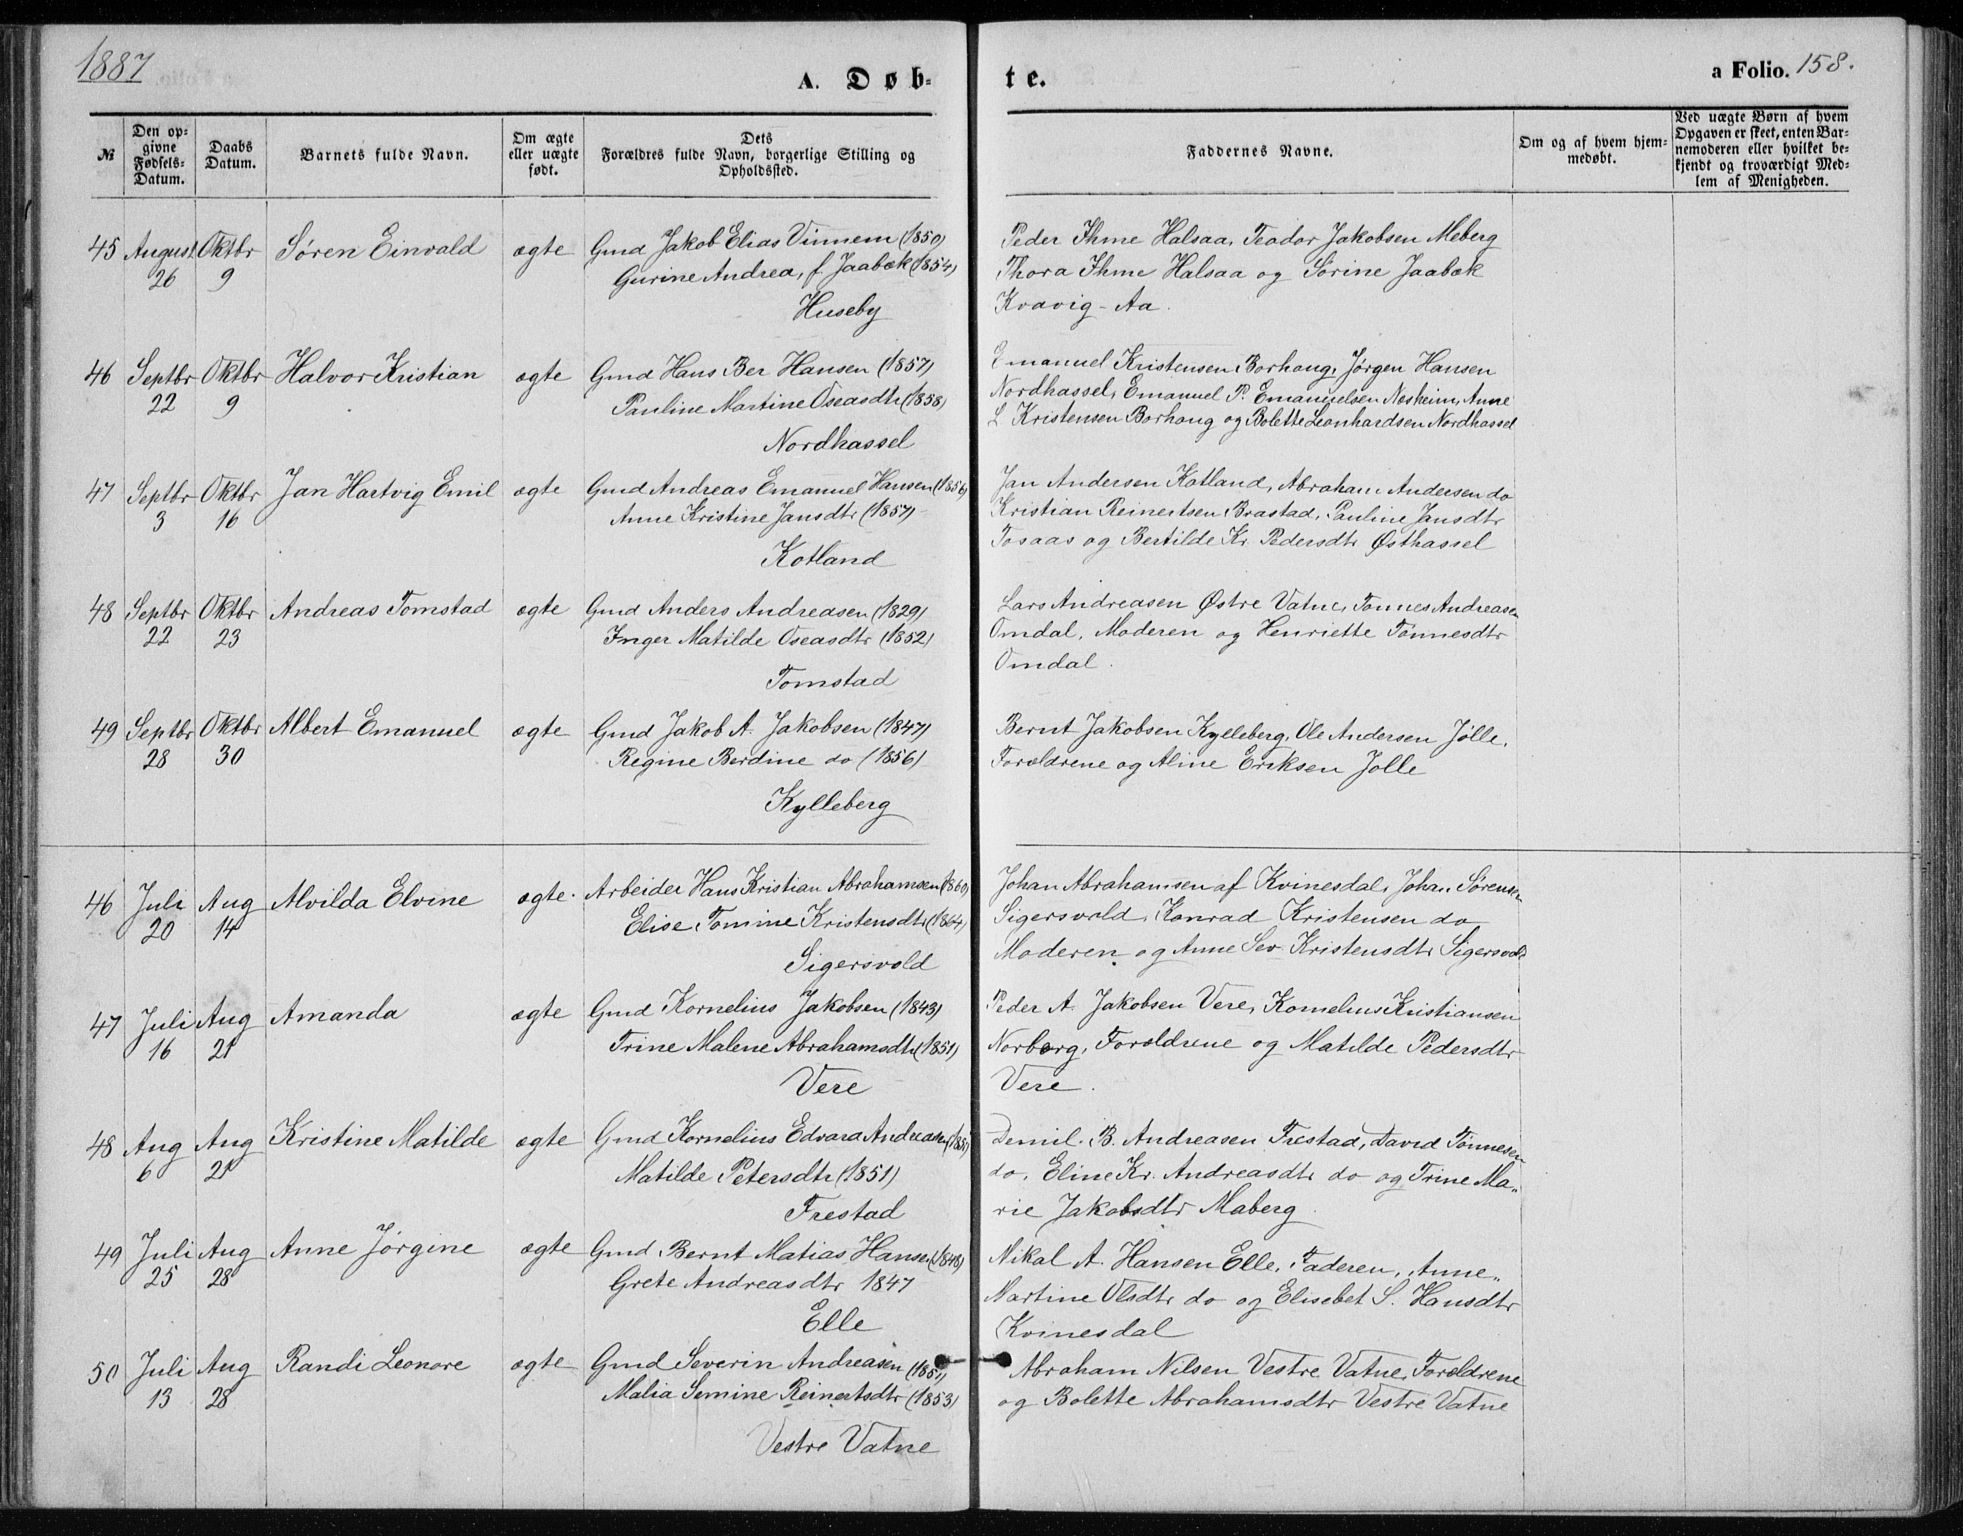 1887
A. Døb-
te.
a Folio. 158.
№
Den op-
givne
Fødsels-
Datum.
Daabs
Datum.
Barnets fulde Navn.
Om ægte
eller uægte
født.
Dets
Forældres fulde Navn, borgerlige Stilling og
Opholdssted.
Faddernes Navne.
Om og af hvem hjem-
medøbt.
Ved uægte Børn af hvem
Opgaven er skeet, enten Bar-
nemoderen eller hvilket be-
kjendt og troværdigt Med-
lem af Menigheden.
45 August Oktbr Søren Einvald ægte Gmd Jakob Elias Vinnem (1850)
26 9 Gurine Andrea, f. Jaabæk (1854)
Huseby
Peder Ihme Halsaa, Teodor Jakobsen Meberg
Thora Ihme Halsaa og Sørine Jaabæk
Kvavig-Aa.
46 Septbr Oktbr Halvor Kristian ægte Gmd Hans Ber Hansen (1857)
22 9 Pauline Martine Oseasdtr (1858)
Nordhassel
Emanuel Kristensen Borhaug, Jørgen Hansen
Nordhassel, Emanuel P. Emanuelsen Nesheim, Anne
L Kristensen Borhaug og Bolette Leonhardsen Nordhassel
47 Septbr Oktbr Jan Hartvig Emil ægte Gmd Andreas Emanuel Hansen (1856)
3 16 Anne Kristine Jansdtr (1857)
Kotland
Jan Andersen Kotland, Abraham Andersen do
Kristian Reinertsen Brastad, Pauline Jansdtr
Tosaas og Bertilde Kr. Pedersdtr Østhassel
48 Septbr Oktbr Andreas Tomstad ægte Gmd Anders Andreasen (1829)
22 23 Inger Matilde Oseasdtr (1852)
Tomstad
Lars Andreasen Østre Vatne, Tønnes Andreasen
Omdal, Moderen og Henriette Tønnesdtr
Omdal.
49 Septbr Oktbr Albert Emanuel ægte Gmd Jakob A. Jakobsen (1847)
28 30 Regine Berdine do (1856)
Kylleberg
Bernt Jakobsen Kylleberg, Ole Andersen Jølle,
Forældrene og Aline Eriksen Jølle
46 Juli Aug Alvilda Elvine ægte. Arbeider Hans Kristian Abrahamsen (1860)
20 14 Elise Tomine Kristensdtr (1864)
Sigersvold
Johan Abrahamsen af Kvinesdal, Johan Sørensen
Sigersvold, Konrad Kristensen do
Moderen og Anne Sev. Kristensdtr Sigersvold
47 Juli Aug Amanda ægte Gmd Kornelius Jakobsen (1843)
16 21 Trine Malene Abrahamsdtr (1851)
Vere
Peder A. Jakobsen Vere, Kornelius Kristiansen
Norberg, Forældrene og Matilde Pedersdtr
Vere.
48 Aug Aug Kristine Matilde ægte Gmd Kornelius Edvard Andreasen
6 21 Matilde Petersdtr (1851)
Frestad
B. Andreasen Frestad, David Tønnesen
do, Eline Kr. Andreasdtr do og Trine Ma„
rie Jakobsdtr Maberg
49 Juli Aug Anne Jørgine ægte Gmd. Bernt Matias Hansen (1848)
25 28 Grete Andreasdtr 1847
Elle
Mikal A. Hansen Elle, Faderen, Anne„
Martine Olsdtr do og Elisebet S. Hansdtr
Kvinesdal
50 Juli Aug Randi Leonore ægte Gmd Severin Andreasen
13 28 Malia Semine Reinertsdtr (1853)
Vestre Vatne
Abraham Nilsen Vestre Vatne, Forældrene
og Bolette Abrahamsdtr Vestre Vatne